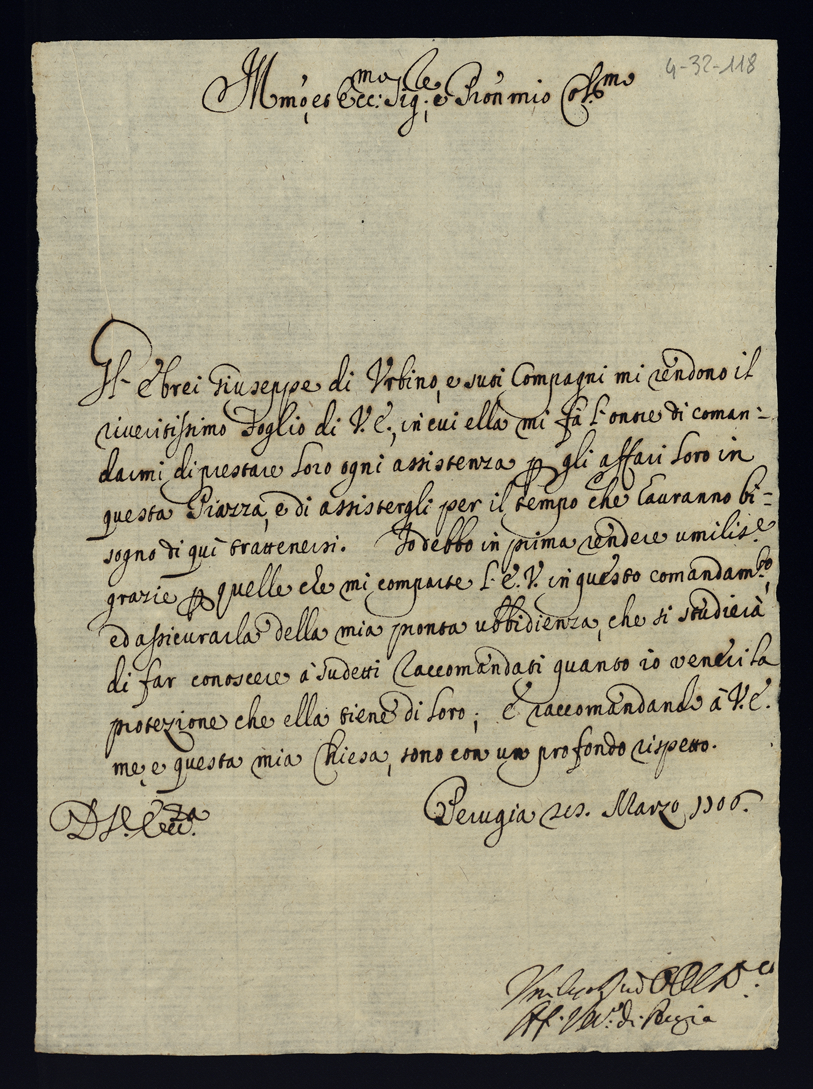 4-32-118
Ill.mo, et Ecc.mo Sig.re e Pron mio Col.mo
Gl' Ebrei Giuseppe di Urbino, e suoi Compagni mi rendono il
riveritissimo Foglio di V.E., in cui ella mi fà l'onore di coman=
darmi di prestare loro ogni assistenza p gli affari loro in
questa Piazza, e di assistergli per il tempo che hauranno bi=
sogno di quì trattenersi. Io debbo in prima rendere umiliss.e
grazie p quelle che mi comparte l'E.V. in questo comandam.to,
ed assicurarla della mia pronta ubbidienza, che si studierà
di far conoscere à sudetti Raccomandati quanto io veneri la
protezione che ella tiene di loro; E raccomandando à V.E.
me, e questa mia Chiesa, sono con un profondo rispetto.
D. V. Ecc.za
Perugia Marzo 1706.
di Perugia